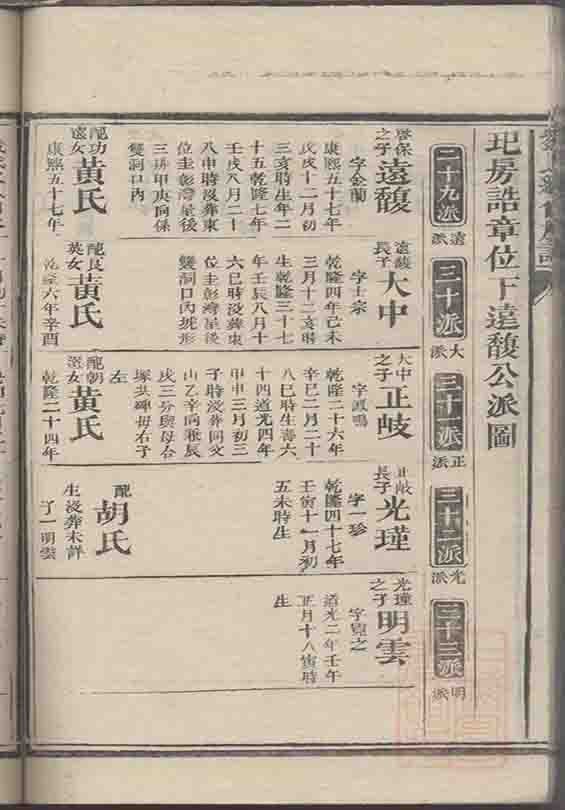 玘房誥章位下遠馥公派圖
二十九派
遠派
三十派
大派
三十一派
正派
三十二派
光派
三十三派
明派
啟保之子
遠馥
字金蘭
康熙五十七年
戊戌十二月初
三亥時生年二
十五乾隆七年
壬戌八月二十
八申時沒葬東
位圭彭灣星後
三排甲庚向係
雙洞口內
配功遠女
黃氏
康熙五十七年
遠馥長子
大中
字士宗
乾隆四年己未
三月十二亥時
生乾隆三十七
年壬辰八月十
六巳時沒葬東
位圭彭灣星後
雙洞口內坑形
配良英女
黃氏
乾隆六年辛酉
大中之子
正岐
字鳳鳴
乾隆二十六年
辛巳二月二十
八巳時生壽六
十四道光四年
甲申三月初三
子時沒葬同文
山乙辛向兼辰
戌三分與母合
塚共碑母右子
左
配朝選女
黃氏
乾隆二十四年
正岐長子
光瑾
字一珍
乾隆四十七年
壬寅十一月初
五未時生
配
胡氏
生沒葬未詳
子一明雲
光瑾之子
明雲
字寬之
道光二年壬午
正月十八寅時
生